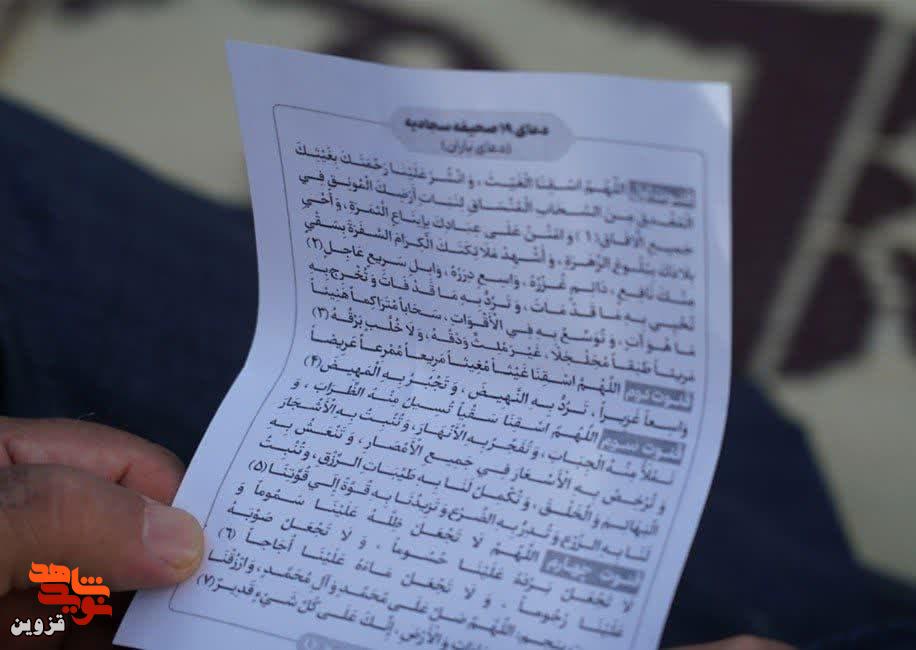 دعای ۱۹ صحیفه سجادیه
(دعای باران)
اللَّهُمَّ اسْقِنَا الْغَيْثَ، وَ انْشُرْ عَلَيْنَا رَحْمَتَكَ بِغَيْثِكَ
الْمُغْدِقِ مِنَ السَّحَابِ الْمُنْسَاقِ لِنَبَاتِ أَرْضِكَ الْمُونِقِ فِي
جَمِيعِ الْآفَاقِ(۱) وَ امْنُنْ عَلَى عِبَادِكَ بِإِينَاعِ الثَّمَرَةِ، وَ أَحْيِ
بِلَادَكَ بِبُلُوغِ الزَّهَرَةِ، وَ أَشْهِدْ مَلَائِكَتَكَ الْكِرَامَ السَّفَرَةَ بِسَقْيٍ
مِنْكَ نَافِعٍ، دَائِمٍ غُزْرُهُ، وَاسِعٍ دِرَرُهُ، وَابِلٍ سَرِيعٍ عَاجِلٍ(۲)
تُحْيِي بِهِ مَا قَدْ مَاتَ، وَ تَرُدُّ بِهِ مَا قَدْ فَاتَ وَ تُخْرِجُ بِهِ
مَا هُوَ آتٍ، وَ تُوَسِّعُ بِهِ فِي الْأَقْوَاتِ، سَحَاباً مُتَرَاكِماً هَنِيئاً
مَرِيئاً طَبَقاً مُجَلْجَلًا، غَيْرَ مُلِثٍّ وَدْقُهُ، وَ لَا خُلَّبٍ بَرْقُهُ(۳)
قنوت دوم اللَّهُمَّ اسْقِنَا غَيْثاً مُغِيثاً مَرِيعاً مُمْرِعاً عَرِيضاً
وَاسِعاً غَزِيراً، تَرُدُّ بِهِ النَّهِيضَ، وَ تَجْبُرُ بِهِ الْمَهِيضَ(۴)
قنوت سوم اللَّهُمَّ اسْقِنَا سَقْياً تُسِيلُ مِنْهُ الظِّرَابَ، وَ
تَمْلَأُ مِنْهُ الْجِبَابَ، وَ تُفَجِّرُ بِهِ الْأَنْهَارَ، وَ تُنْبِتُ بِهِ الْأَشْجَارَ
وَ تُرْخِصُ بِهِ الْأَسْعَارَ فِي جَمِيعِ الْأَمْصَارِ، وَ تَنْعَشُ بِهِ
الْبَهَائِمَ وَ الْخَلْقَ، وَ تُكْمِلُ لَنَا بِهِ طَيِّبَاتِ الرِّزْقِ، وَ تُنْبِتُ
لَنَا بِهِ الزَّرْعَ وَ تُدِرُّ بِهِ الضَّرْعَ وَ تَزِيدُنَا بِهِ قُوَّةً إِلَى قُوَّتِنَا(۵)
قنوت چهارم اللَّهُمَّ لَا تَجْعَلْ ظِلَّهُ عَلَيْنَا سَمُوماً وَ
لَا تَجْعَلْ بَرْدَهُ عَلَيْنَا حُسُوماً، وَ لَا تَجْعَلْ صَوْبَهُ
عَلَيْنَا رُجُوماً، وَ لَا تَجْعَلْ مَاءَهُ عَلَيْنَا أُجَاجاً(۶)
پنجم: اللَّهُمَّ صَلِّ عَلَى مُحَمَّدٍ وَ آلِ مُحَمَّدٍ، وَ ارْزُقْنَا
وَ الْأَرْضِ، إِنَّكَ عَلَى كُلِّ شَيْءٍ قَدِيرٌ(۷)
نوید شاهد
قزوین